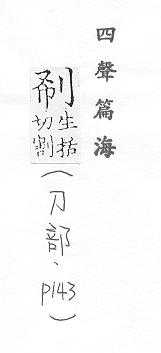 四聲篇海
生括
切割
(刀部、p143)